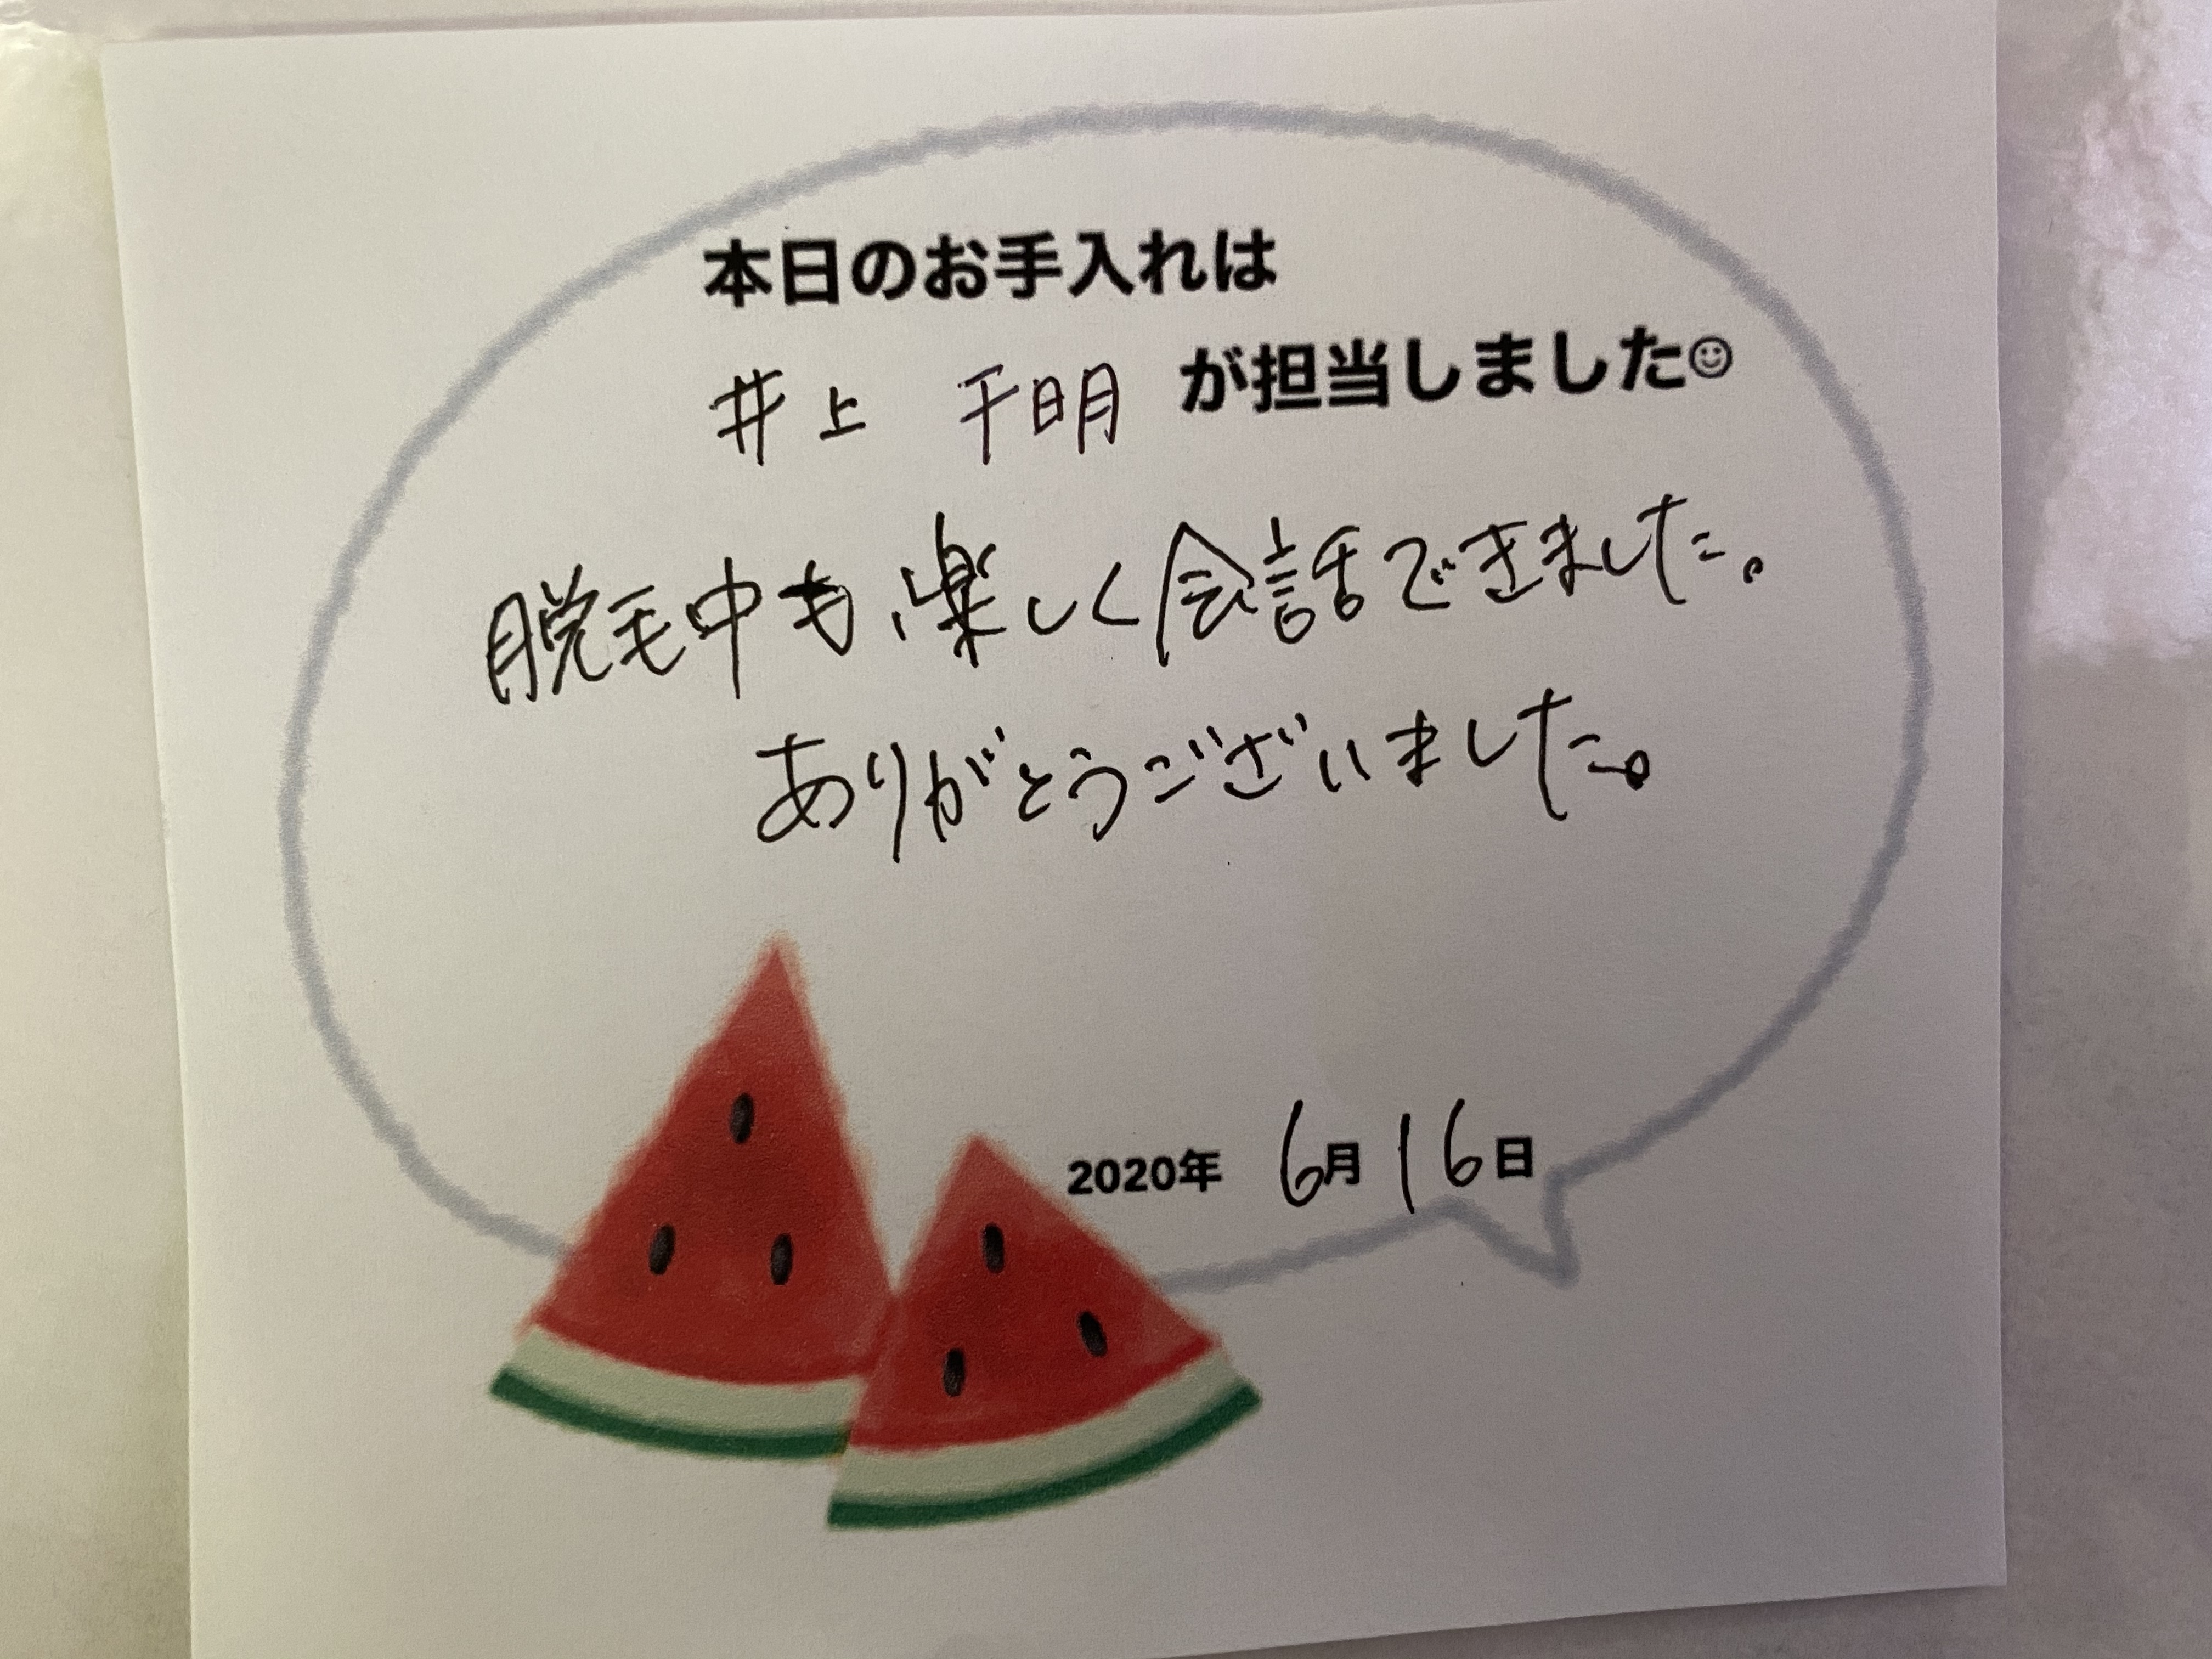 本日のお手入れは
井上 千明 が担当しました☺
脱毛中も楽しく会話できました。
ありがとうございました。
2020年 6月16日